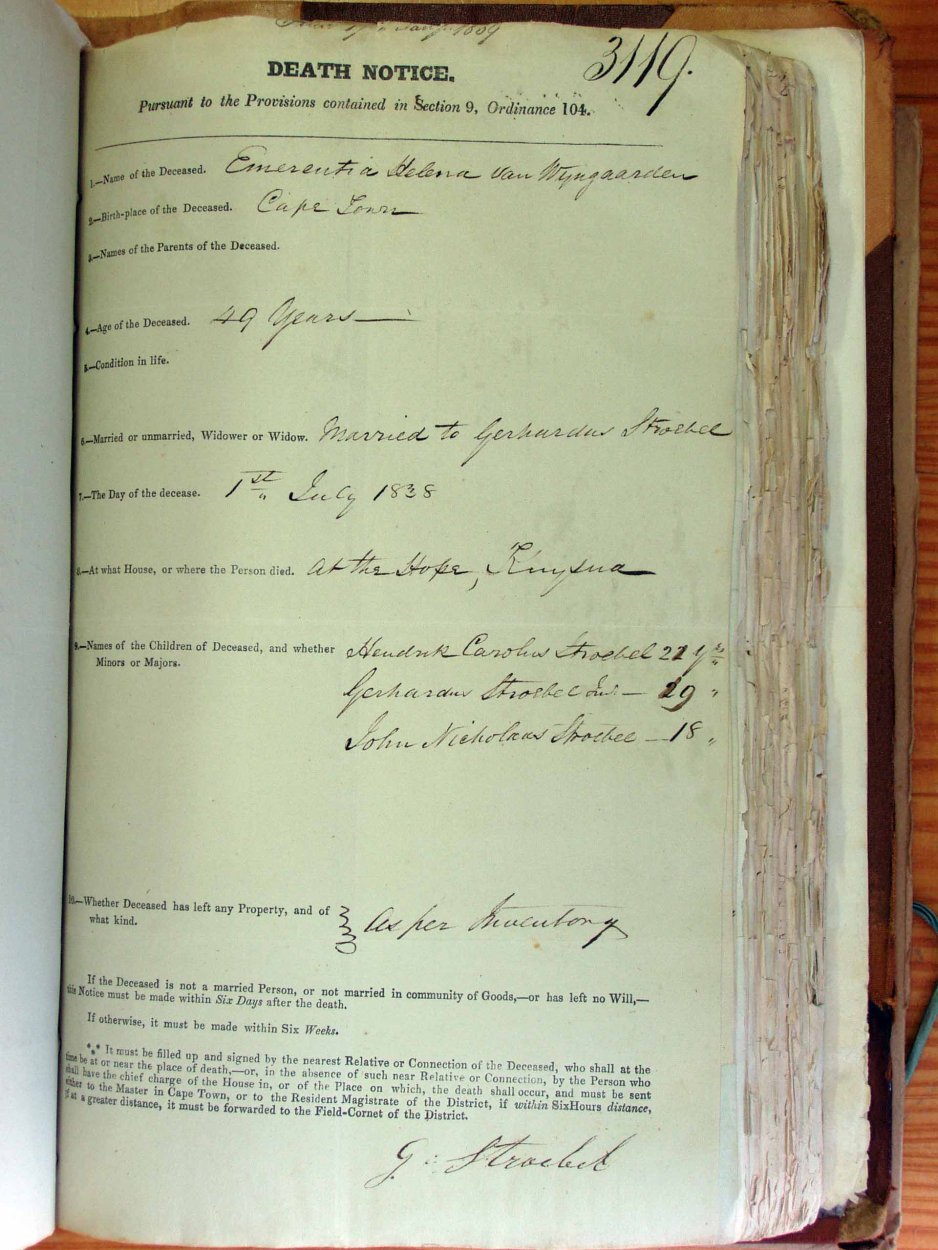 1839
3119.
DEATH NOTICE.
Pursuant to the Provisions contained in Section 9, Ordinance 104.
1.—Name of the Deceased. Emerentia Helena van Wyngaarden
2.—Birth-place of the Deceased. Cape Town
3.—Names of the Parents of the Deceased.
4.—Age of the Deceased. 49 Years
5.—Condition in life.
6.—Married or unmarried, Widower or Widow. Married to Gerhardus Stroebel
7.—The Day of the decease. 1st July 1838
8.—At what House, or where the Person died. At the Hope, Knysna
9.—Names of the Children of Deceased, and whether Hendrik Carolus Stroebel 21 yrs
Minors or Majors.
Gerhardus Stroebel Junr — 19 "
John Nicholaas Stroebel — 18 "
10.—Whether Deceased has left any Property, and of
what kind. As per Inventory
If the Deceased is not a married Person, or not married in community of Goods,—or has left no Will,—
this Notice must be made within Six Days after the death.
If otherwise, it must be made within Six Weeks.
*** It must be filled up and signed by the nearest Relative or Connection of the Deceased, who shall at the
time be at or near the place of death,—or, in the absence of such near Relative or Connection, by the Person who
shall have the chief charge of the House in, or of the Place on which, the death shall occur, and must be sent
either to the Master in Cape Town, or to the Resident Magistrate of the District, if within SixHours distance,
if at a greater distance, it must be forwarded to the Field-Cornet of the District.
G: Stroebel